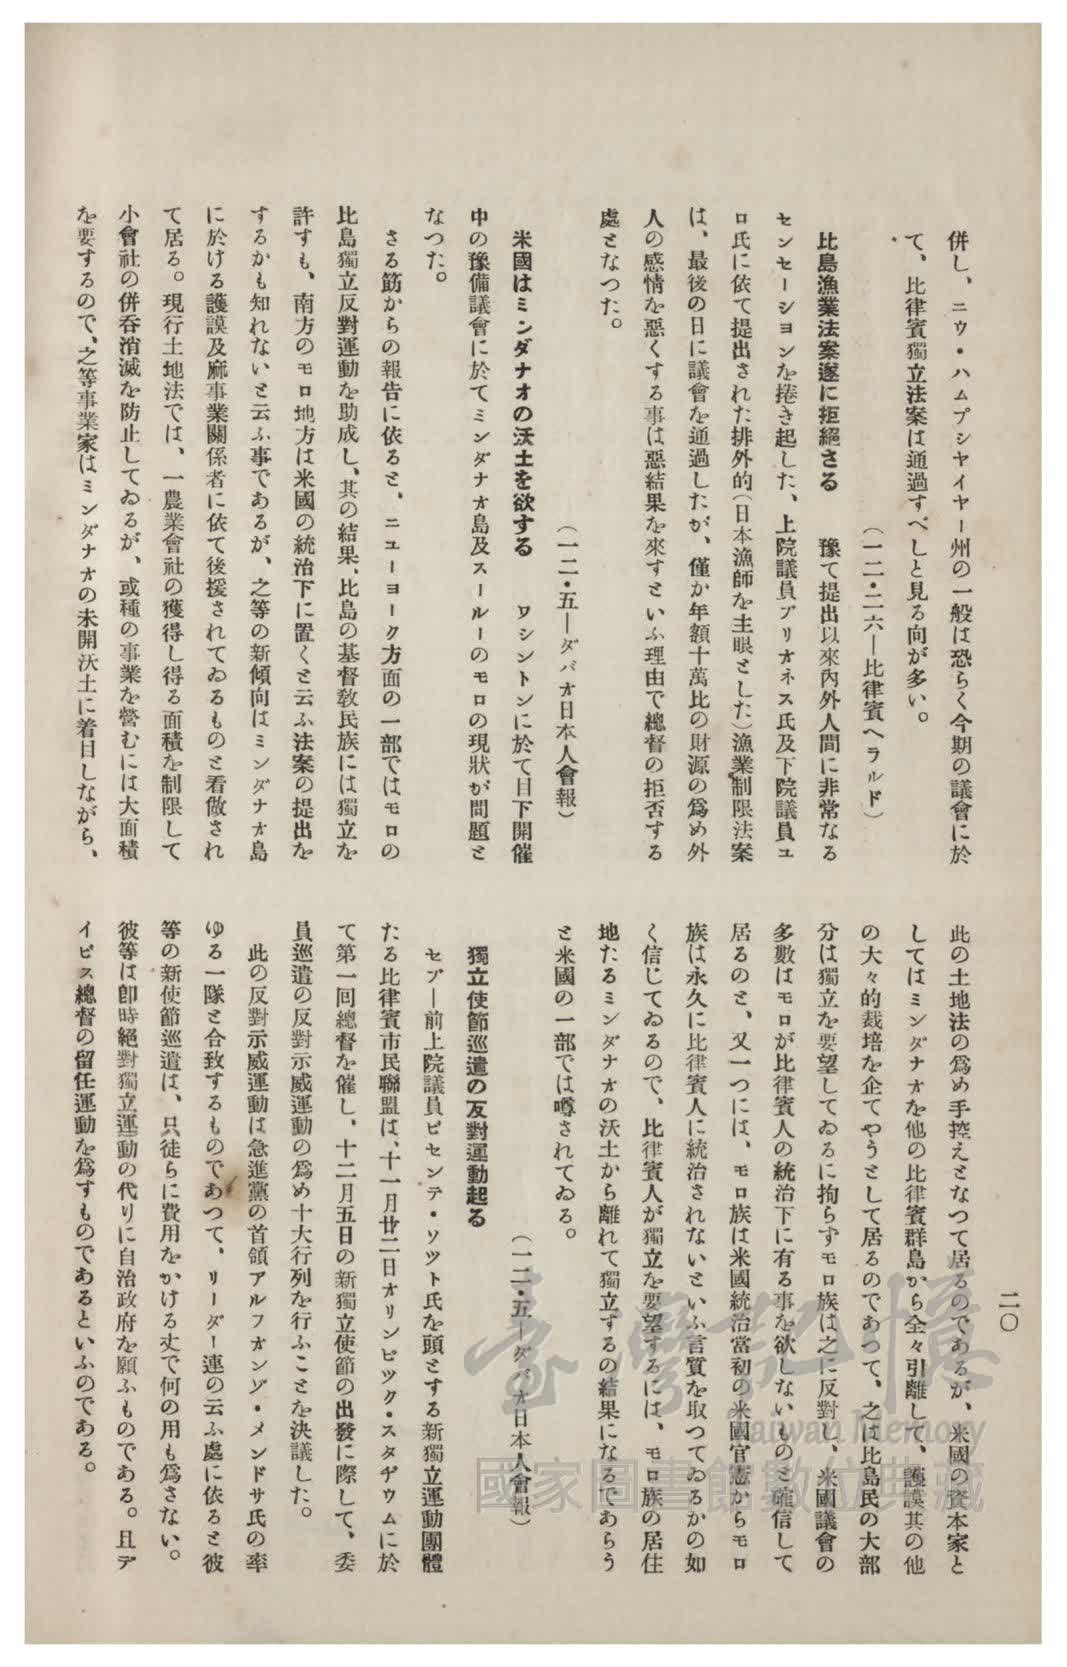 二〇
併し、ニウ・ハムプシヤイヤー州の一般は恐らく今期の議會に於
て、比律賓獨立法案は通過すべしと見る向が多い。
（一二・二六―比律賓ヘラルド）
比島漁業法案遂に拒絕さる　豫て提出以來內外人間に非常なる
センセーシヨンを捲き起した、上院議員ブリオネス氏及下院議員ユ
ロ氏に依て提出された排外的（日本漁師を主眼とした）漁業制限法案
は、最後の日に議會を通過したが、僅か年額十萬比の財源の爲め外
人の感情を惡くする事は惡結果を來すといふ理由で總督の拒否する
處となつた。
（一二・五―ダバオ日本人會報）
米國はミンダナオの沃土を欲する　ワシントンに於て目下開催
中の豫備議會に於てミンダナオ島及スールーのモロの現狀が問題と
なつた。
さる筋からの報告に依ると、ニューヨーク方面の一部ではモロの
比島獨立反對運動を助成し、其の結果、比島の基督敎民族には獨立を
許すも、南方のモロ地方は米國の統治下に置くと云ふ法案の提出を
するかも知れないと云ふ事であるが、之等の新傾向はミンダナオ島
に於ける護謨及麻事業關係者に依て後援されてゐるものと看做され
て居る。現行土地法では、一農業會社の獲得し得る面積を制限して
小會社の併呑消滅を防止してゐるが、或種の事業を營むには大面積
を要するので、之等事業家はミンダナオの未開沃土に着目しながら、
此の土地法の爲め手控えとなつて居るのであるが、米國の資本家と
してはミンダナオを他の比律賓群島から全々引離して、護謨其の他
の大々的裁培を企てやうとして居るのであつて、之は比島民の大部
分は獨立を要望してゐるに拘らずモロ族は之に反對し、米國議會の
多數はモロが比律賓人の統治下に有る事を欲しないものと確信して
居るのと、又一つには、モロ族は米國統治當初の米國官憲からモロ
族は永久に比律賓人に統治されないといふ言質を取つてゐるかの如
く信じてゐるので、比律賓人が獨立を要望するには、モロ族の居住
地たるミンダナオの沃土から離れて獨立するの結果になるであらう
と米國の一部では噂されてゐる。
（一二・五―ダバオ日本人會報）
獨立使節巡遣の反對運動起る
セブ―前上院議員ビセンテ・ソツト氏を頭とする新獨立運動團體
たる比律賓市民聯盟は、十一月廿二日オリンピツク・スタヂウムに於
て第一回總督を催し、十二月五日の新獨立使節の出發に際して、委
員巡遣の反對示威運動の爲め十大行列を行ふことを決議した。
此の反對示威運動は急進黨の首領アルフオンゾ・メンドサ氏の率
ゆる一隊と合致するものであつて、リーダー連の云ふ處に依ると彼
等の新使節巡遣は、只徒らに費用をかける丈で何の用も爲さない。
彼等は卽時絕對獨立運動の代りに自治政府を願ふものである。且デ
イビス總督の留任運動を爲すものであるといふのである。
臺灣記憶
Taiwan Memory
國家圖書館數位典藏